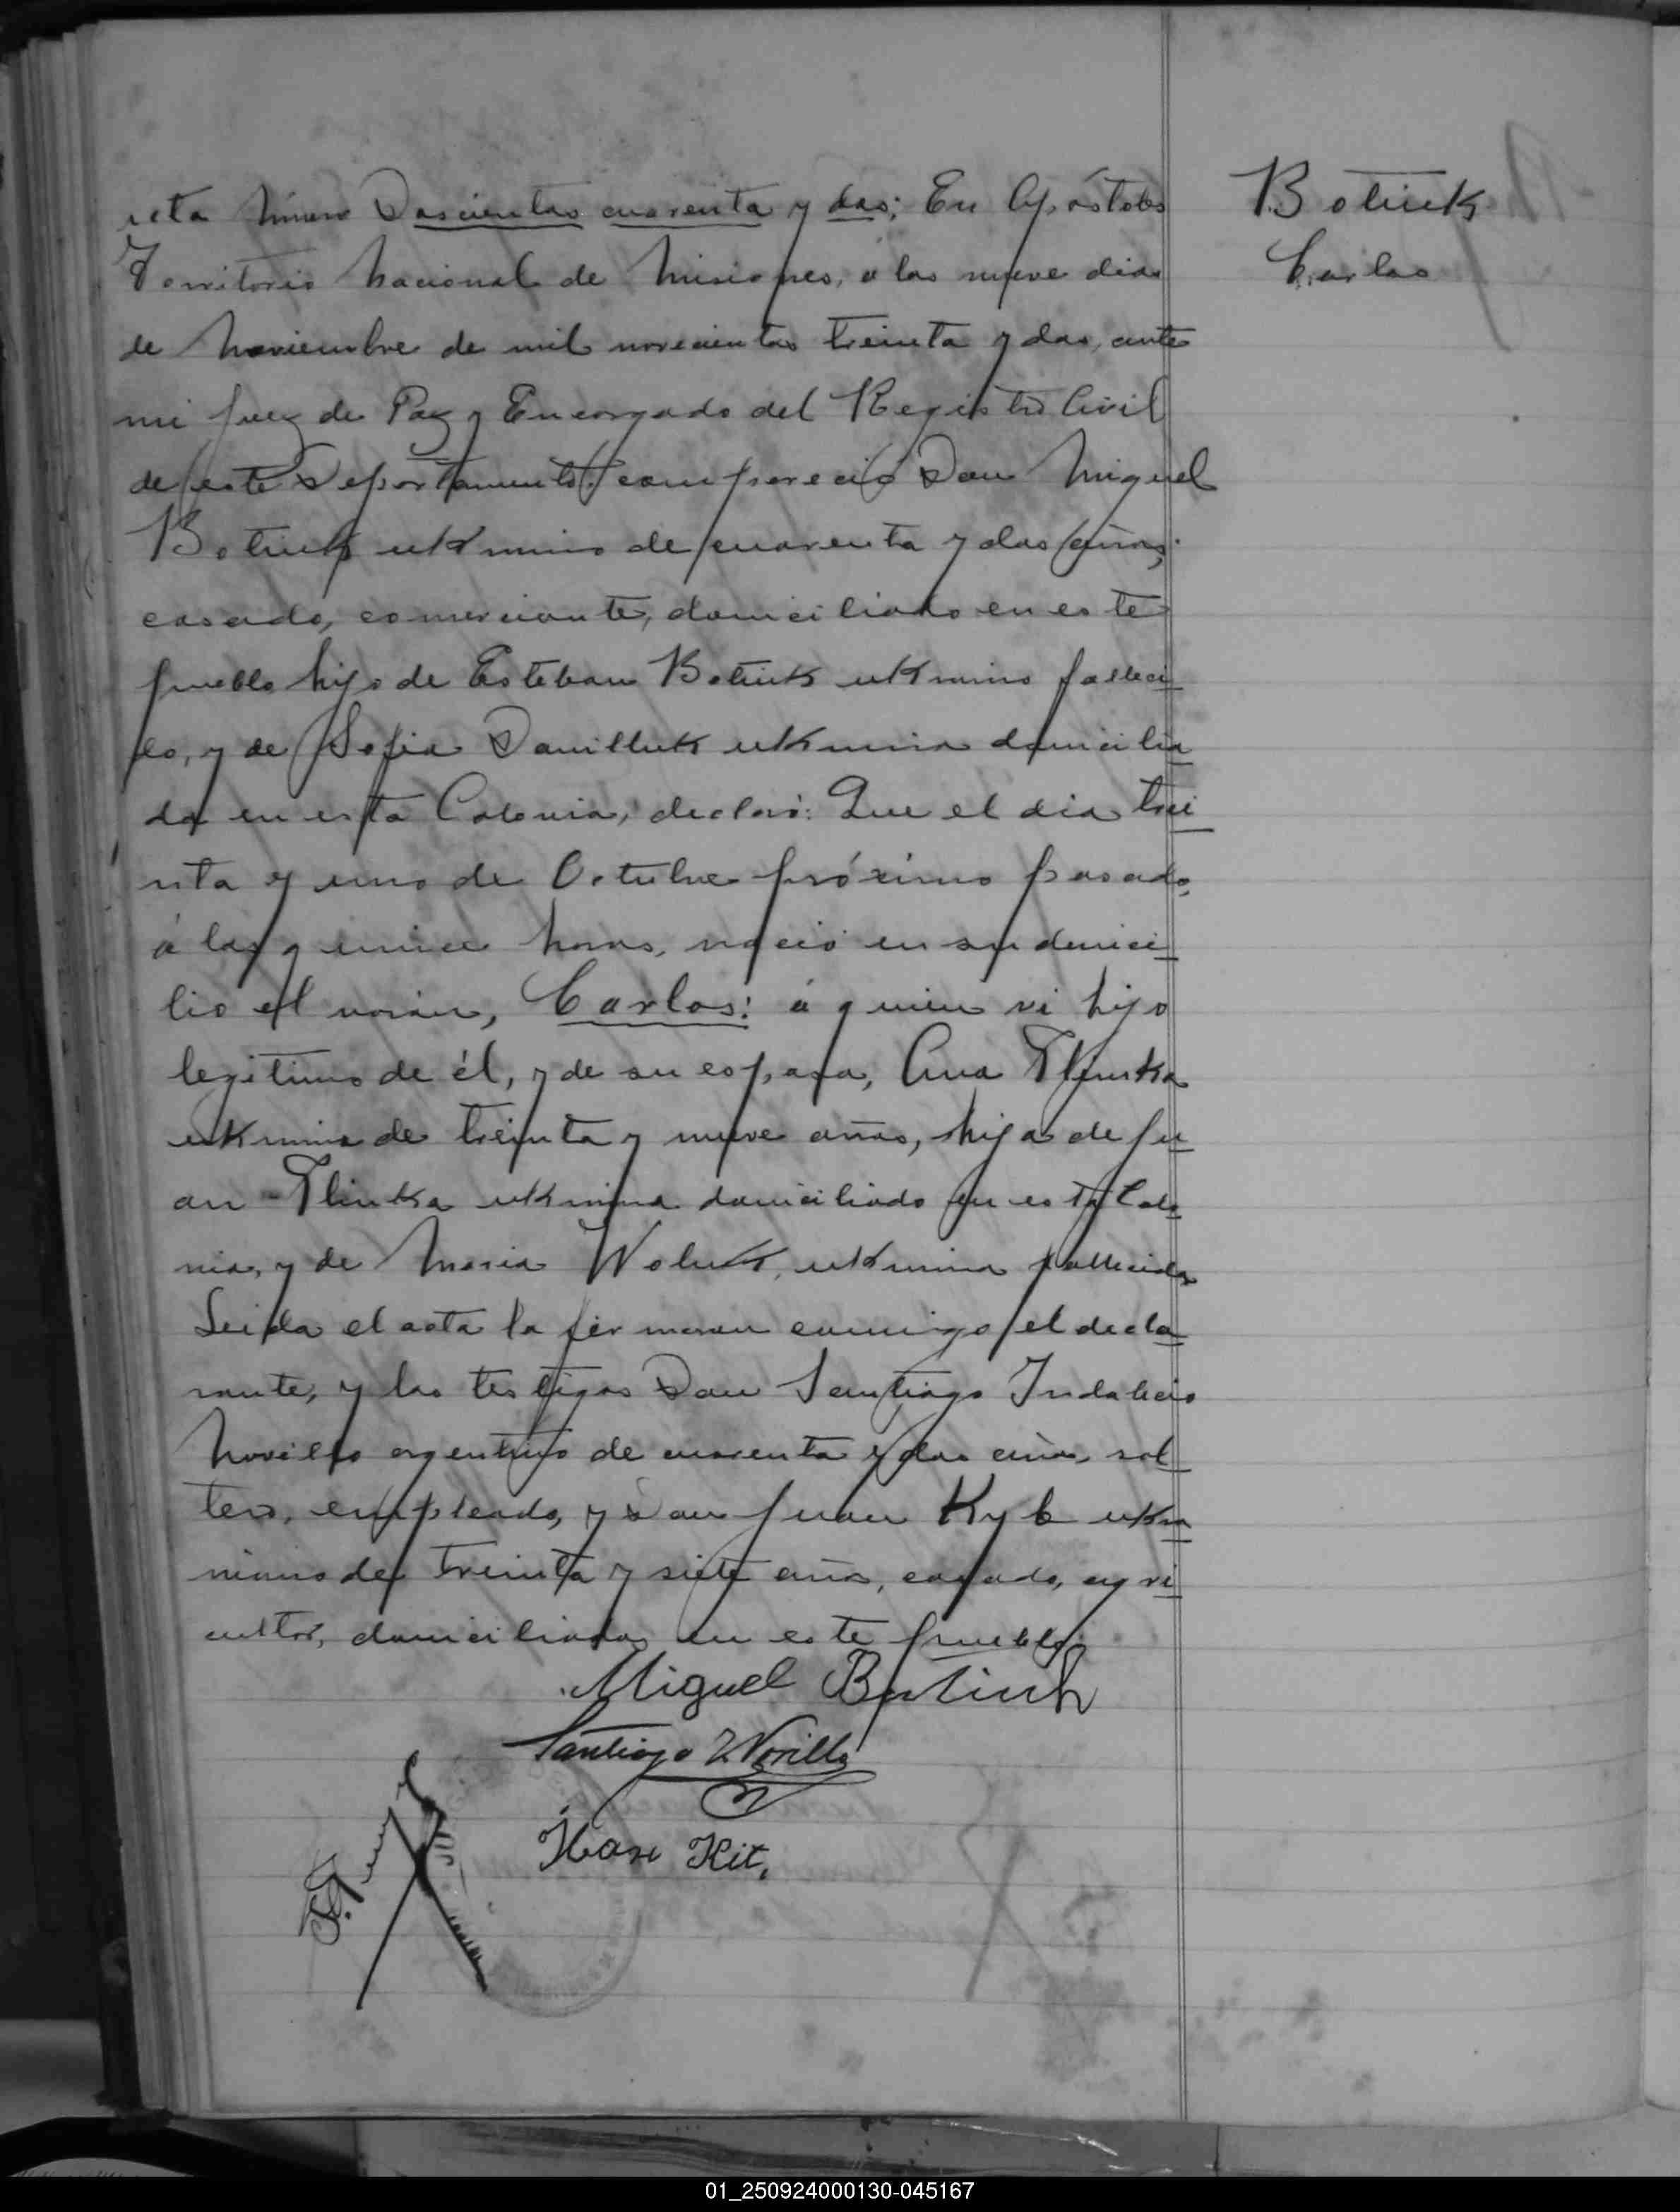 acta número Doscientos cuarenta y dos; En Apóstoles
Territorio Nacional de Misiones, á los nueve dias
de Noviembre de mil novecientos treinta y dos, ante
mi Juez de Paz y Encargado del Registro Civil
de este Departamento; compareció Don Miguel
Botiuk ukranino de cuarenta y dos años,
casado, comerciante, domiciliado en este
pueblo hijo de Esteban Botiuk ukranino falleci
do, y de Sofia Danilluk ukranina domicilia
da en esta Colonia, declaró: Que el dia trei
nta y uno de Octubre próximo pasado,
á las quince horas, nació en su domici
lio el varón, Carlos: á quien vi hijo
legitimo de él, y de su esposa, Ana Tlinka
ukranina de treinta y nueve años, hija de Ju
an Tlinka ukranino domiciliado en esta Colo
nia, y de Maria Woluk, ukranina fallecida
Leida el acta la firmaron conmigo el decla
rante, y los testigos Don Santiago Indalecio
Novillo argentino de cuarenta y dos años, sol
tero, empleado, y Don Juan Kyb ukra
niano de treinta y siete años, casado, agri
cultor, domiciliados en este pueblo.
Miguel Botiuk
Santiago I Novillo
Iban Kit.
Botiuk
Carlos
01_250924000130-045167